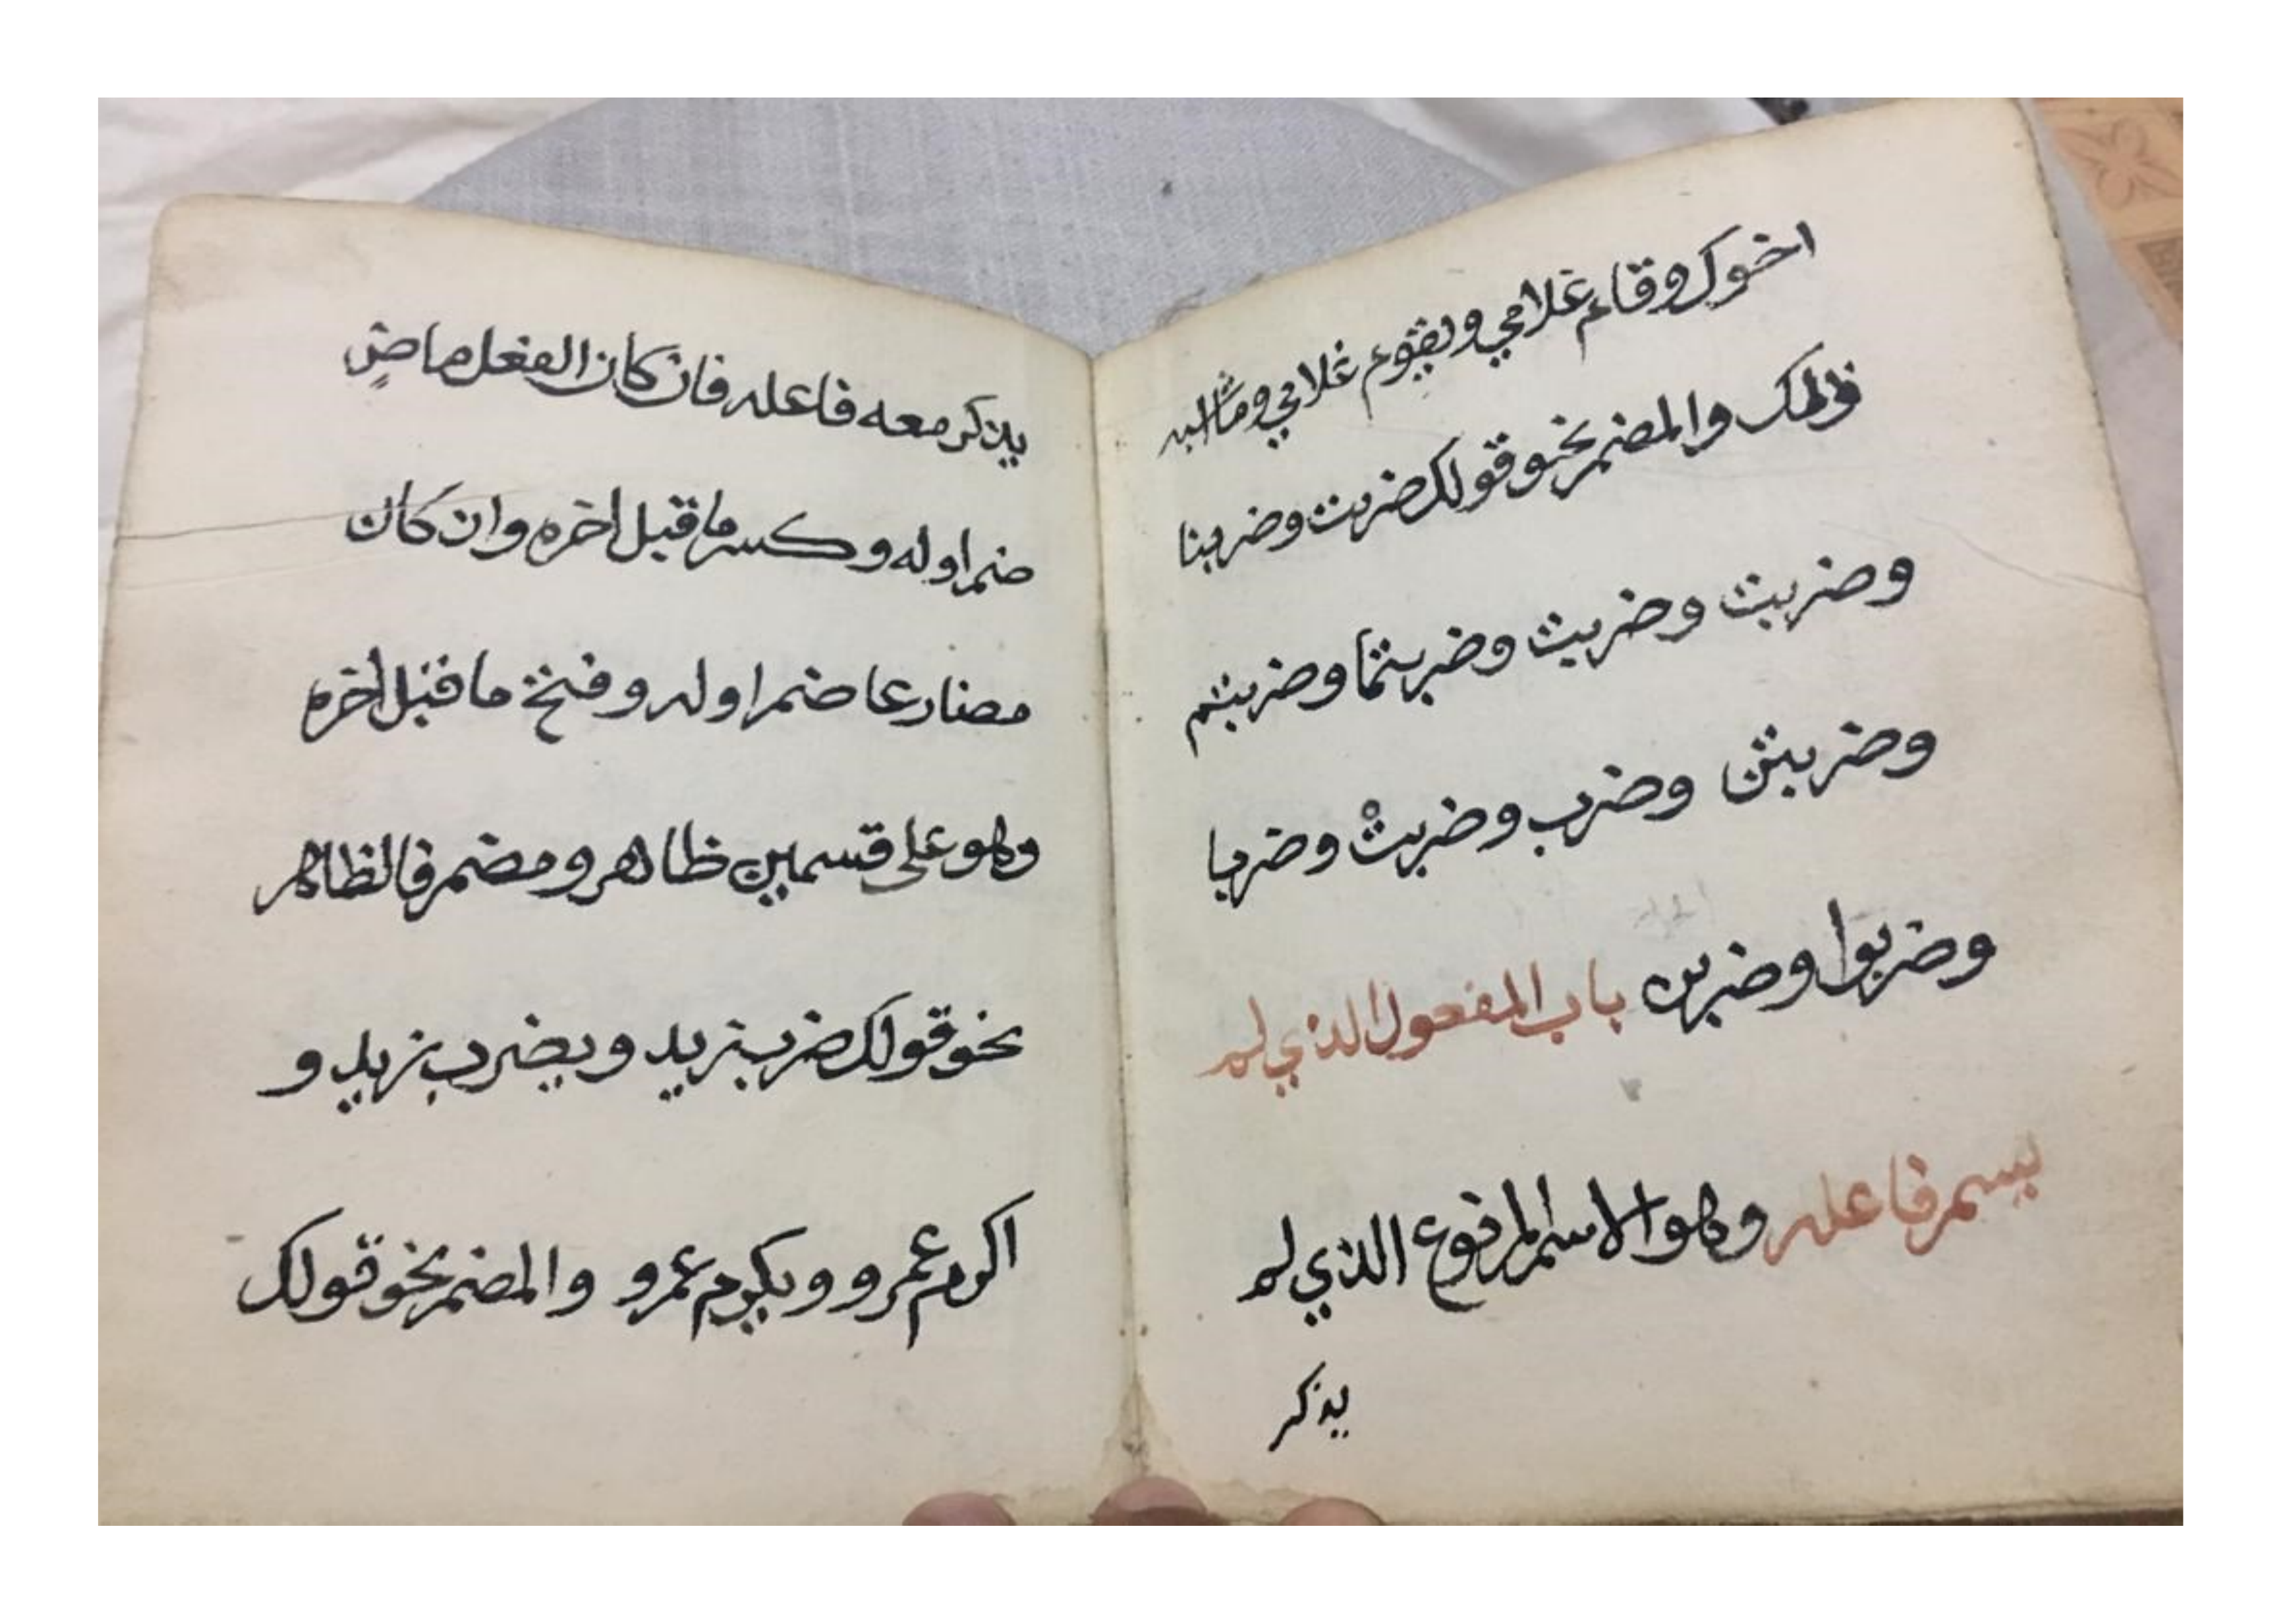 اخوك وقام غلامي ويقوم غلامي وما اشبه
ذلك والمضمر نحو قولك ضربت وضربنا
وضربت وضربت وضربتما وضربتم
وضربتن وضرب وضربتْ وضربا
وضربوا وضربن باب المفعول الذي لم
يسم فاعله وهو الاسم المرفوع الذي لم
يذكر
يذكر معه فاعله فان كان الفعل ماضٍ
ضم اوله وكسر ما قبل اخره وان كان
مضارعا ضم اوله وفتح ما قبل اخره
وهو على قسمين ظاهر ومضمر فالظاهر
نحو قولك ضرب زيد ويضرب زيد و
اكرم عمرو ويكرم عمرو والمضمر نحو قولك